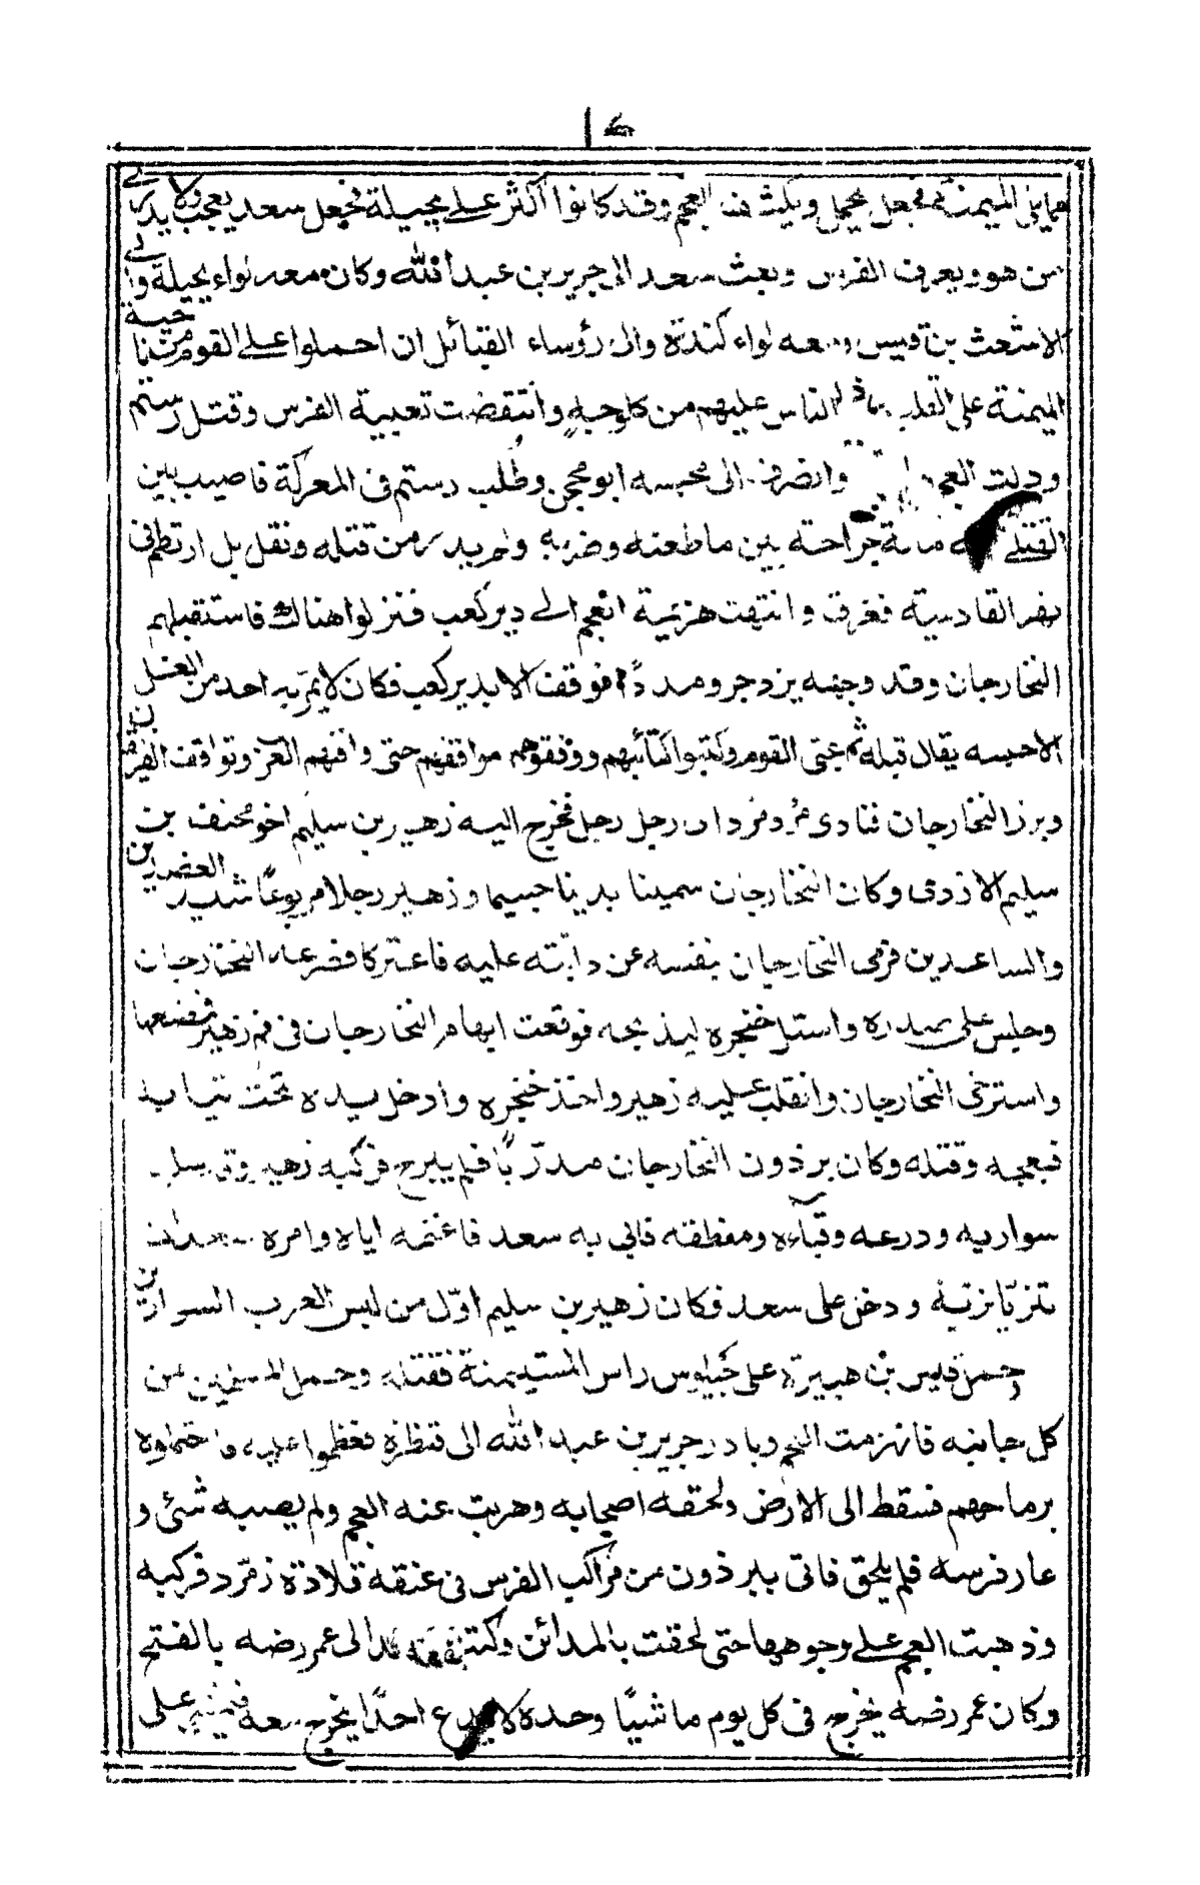 مما يلى الميمنة فجعل يحمل ويكشف العجم وقد كانوا اكثر على بجيلة فجعل سعد يعجب ولا يدرى
من هو ويعرف الفرس وبعث سعد الى جرير بن عبد الله وكان معه لواء بجيلة والى
الاشعث بن قيس ومعه لواء كندة والى رؤساء القبائل ان احملوا على القوم من ناحية
الميمنة على القلب الناس عليهم من كل وجه وانتقضت تعبية الفرس وقتل رستم
وولت العجم وانصرف الى محبسه ابو محجن وطلب رستم فى المعركة فاصيب بين
القتلى مائة جراحة بين ما طعنه وضربه ولم يدر من قتله ونقل بل ارتطم فى
نهر القادسية فغرق وانتهت هزيمة العجم الى دير كعب فنزلوا هناك فاستقبلهم
النخارجان وقد وجهه يزدجرد مددًا فوقف الا بدير كعب فكان لا يمرّ به احد من الفل
الا حبسه يقال قبله ثم عبّى القوم وكتبوا كتائبهم ووقفوهم مواقفهم حتى وافهم العرب وتواقف الفريقان
وبرز النخارجان فنادى مرد ومرد اى رجل رجل فخرج اليه زهير بن سليم اخو مخنف بن
سليم الازدى وكان النخارجان سمينا بدينا جسيما وزهير رجلا مربوعًا شديد العضدين
والساعدين فرمى النخارجان بنفسه عن دابّته عليه فاعتركا فصرعه النخارجان
وجلس على صدره واستل خنجره ليذبحه فوقعت ابهام النخارجان فى فم زهير فمضغها
واسترخى النخارجان وانقلب عليه زهير واخذ خنجره وادخل يده تحت ثيابه
فبعجه وقتله وكان برذون النخارجان مدرّبًا فلم يبرح فركبه زهير وقد سلب
سواريه ودرعه وقباءه ومنطقته فاتى به سعد فاغنمه اياه وامره سعد ان
يتزيّا بزيّه ودخل على سعد فكان زهير بن سليم اوّل من لبس العرب السوارين
وحمل قيس بن هبيرة على جيلوس راس المستميتة فقتله وحمل المسلمين من
كل جانبه فانهزمت العجم وبادر جرير بن عبد الله الى قنطرة فعطفوا عليه فاحتملوه
برماحهم فسقط الى الارض ولحقه اصحابه وهربت عنه العجم ولم يصبه شئ و
عار فرسه فلم يلحق فاتى ببرذون من مراكب الفرس فى عنقه قلادة زمرّد فركبه
وذهبت العجم على وجوهها حتى لحقت بالمدائن وكتب سعد الى عمر رضه بالفتح
وكان عمر رضه يخرج فى كل يوم ماشيًا وحده لا يدع احدًا يخرج معه فيمشى على